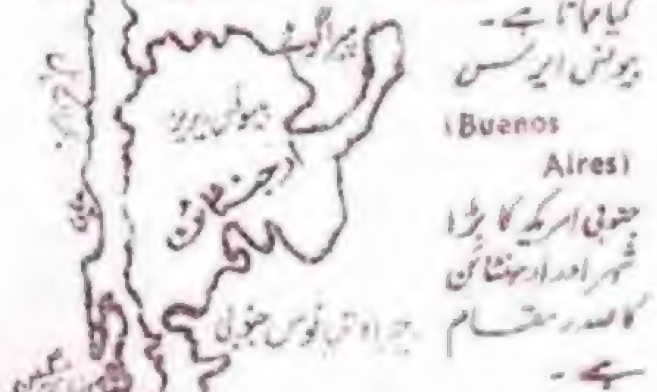 کیا جاتا ہے -
بیونس ایرس
(Buenos
Aires)
جنوبی امریکہ کا بڑا
شہر اور ارجنٹائن
کا صدر مقام
ہے -
پیراگوئے
بیونس ایریز
ارجنٹائن
چلی
جنوبی